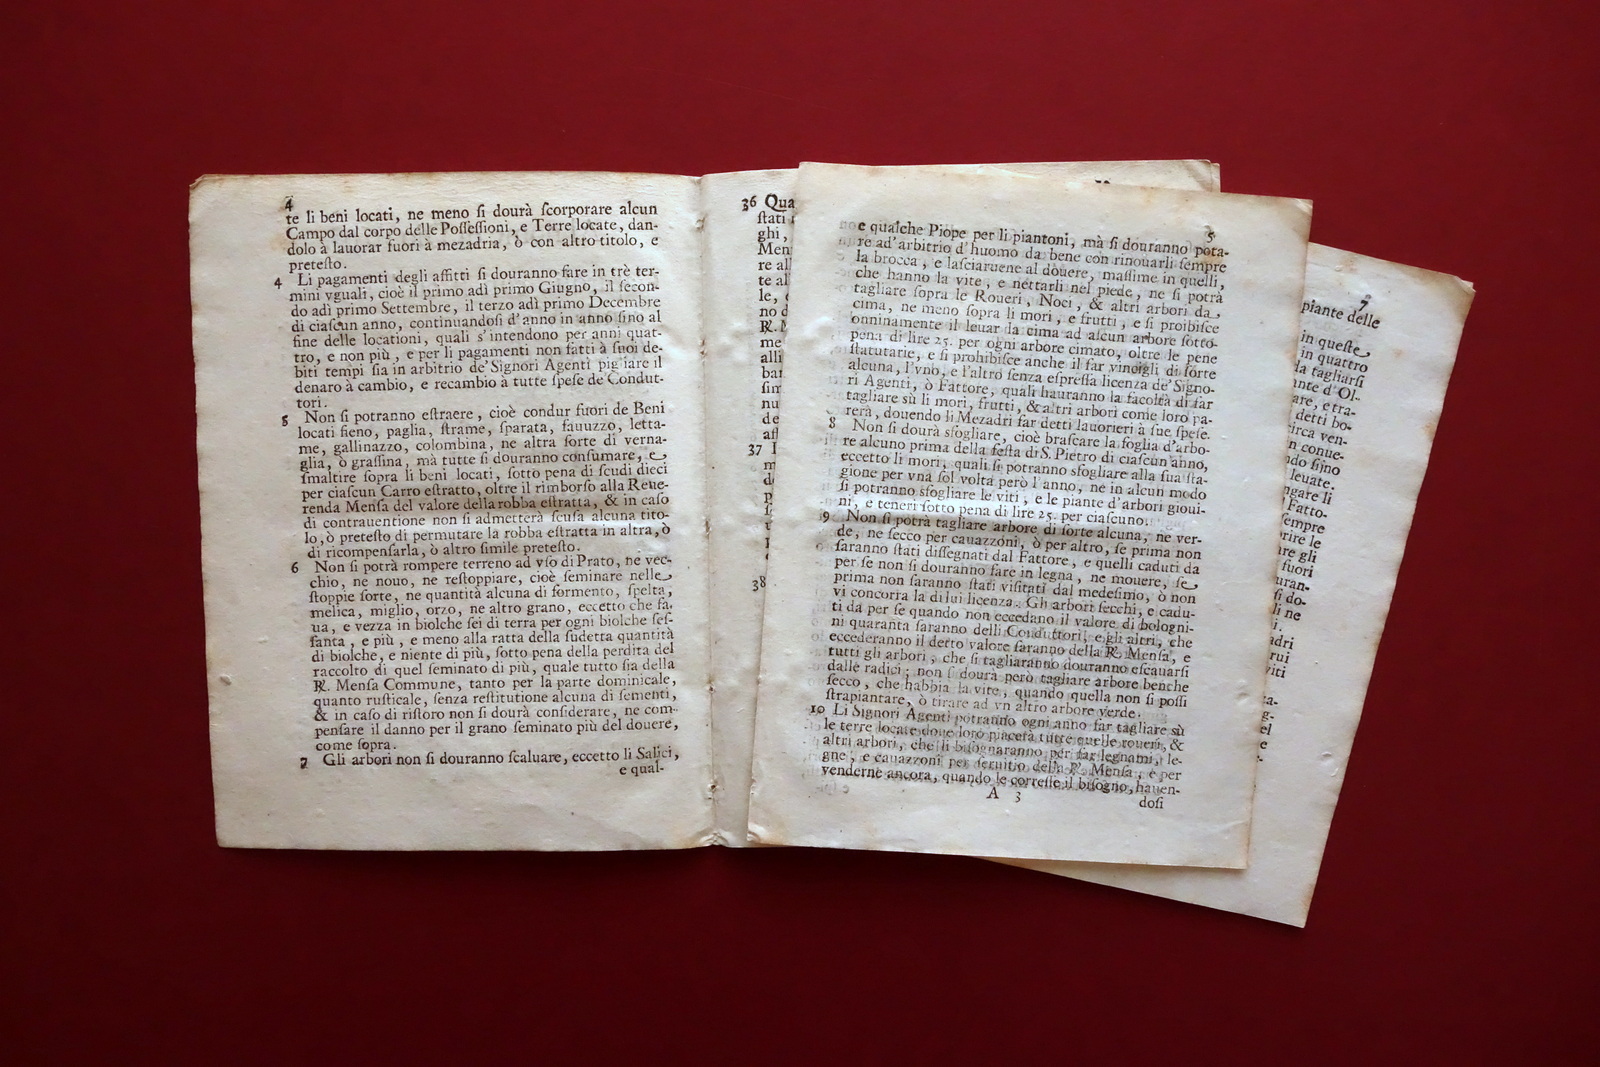 4
te li beni locati, ne meno ſi dourà ſcorporare alcun
Campo dal corpo delle Poſſeſſioni, e Terre locate, dan-
dolo à lauorar fuori à mezadria, ò con altro titolo, e
preteſto.
4 Li pagamenti degli affitti ſi douranno fare in trè ter-
mini vguali, cioè il primo adì primo Giugno, il ſecon-
do adì primo Settembre, il terzo adì primo Decembre
di ciaſcun anno, continuandoſi d'anno in anno ſino al
fine delle locationi, quali s'intendono per anni quat-
tro, e non più, e per li pagamenti non fatti à ſuoi de-
biti tempi ſia in arbitrio de'Signori Agenti pigliare il
denaro à cambio, e recambio à tutte ſpeſe de'Condut-
tori.
5 Non ſi potranno eſtraere, cioè condur fuori de Beni
locati fieno, paglia, ſtrame, ſparata, fauuzzo, letta-
me, gallinazzo, colombina, ne altra ſorte di verna-
glia, ò graſſina, mà tutte ſi douranno conſumare, e
ſmaltire ſopra li beni locati, ſotto pena di ſcudi dieci
per ciaſcun Carro eſtratto, oltre il rimborſo alla Reue-
renda Menſa del valore della robba eſtratta, & in caſo
di contrauentione non ſi admetterà ſcuſa alcuna tito-
lo, ò preteſto di permutare la robba eſtratta in altra, ò
di ricompenſarla, ò altro ſimile preteſto.
6 Non ſi potrà rompere terreno ad vſo di Prato, ne vec-
chio, ne nouo, ne reſtoppiare, cioè ſeminare nelle
ſtoppie ſorte, ne quantità alcuna di formento, ſpelta,
melica, miglio, orzo, ne altro grano, eccetto che fa-
ua, e vezza in biolche ſei di terra per ogni biolche ſeſ-
ſanta, e più, e meno alla ratta della ſudetta quantità
di biolche, e niente di più, ſotto pena della perdita del
raccolto di quel ſeminato di più, quale tutto ſia della
R. Menſa Commune, tanto per la parte dominicale,
quanto ruſticale, ſenza reſtitutione alcuna di ſementi,
& in caſo di riſtoro non ſi dourà conſiderare, ne com-
penſare il danno per il grano ſeminato più del douere,
come ſopra.
7 Gli arbori non ſi douranno ſcaluare, eccetto li Salici,
e qual-
36 Qua
ſtati
ghi,
Men
re al
te al
le,
no d
R. M
me
alli
bar
ſim
nu
de
aff
37
m
d
p
38
5
e qualche Piope per li piantoni, mà ſi douranno pota-
re ad'arbitrio d'huomo da bene con rinouarli ſempre
la brocca, e laſciaruene al douere, maſſime in quelli,
che hanno la vite, e nettarli nel piede, ne ſi potrà
tagliare ſopra le Roueri, Noci, & altri arbori da
cima, ne meno ſopra li mori, e frutti, e ſi proibiſce
onninamente il leuar la cima ad alcun arbore ſotto
pena di lire 25. per ogni arbore cimato, oltre le pene
ſtatutarie, e ſi prohibiſce anche il far vincigli di ſorte
alcuna, l'vno, e l'altro ſenza eſpreſſa licenza de'Signo-
ri Agenti, ò Fattore, quali hauranno la facoltà di far
tagliare sù li mori, frutti, & altri arbori come loro pa-
rerà, douendo li Mezadri far detti lauorieri à ſue ſpeſe.
8 Non ſi dourà sfogliare, cioè braſcare la foglia d'arbo-
re alcuno prima della feſta di S. Pietro di ciaſcun'anno,
eccetto li mori, quali ſi potranno sfogliare alla ſua ſta-
gione per vna ſol volta però l'anno, ne in alcun modo
ſi potranno sfogliare le viti, e le piante d'arbori gioui-
ni, e teneri ſotto pena di lire 25. per ciaſcuno.
9 Non ſi potrà tagliare arbore di ſorte alcuna, ne ver-
de, ne ſecco per cauazzoni, ò per altro, ſe prima non
ſaranno ſtati diſſegnati dal Fattore, e quelli caduti da
per ſe non ſi douranno fare in legna, ne mouere, ſe
prima non ſaranno ſtati viſitati dal medeſimo, ò non
vi concorra la di lui licenza. Gli arbori ſecchi, e cadu-
ti da per ſe quando non eccedano il valore di bologni-
ni quaranta ſaranno delli Conduttori, e gli altri, che
eccederanno il detto valore ſaranno della R. Menſa, e
tutti gli arbori, che ſi tagliaranno douranno eſcauarſi
dalle radici, non ſi dourà però tagliare arbore benche
ſecco, che habbia la vite, quando quella non ſi poſſi
ſtrapiantare, ò tirare ad vn altro arbore verde.
10 Li Signori Agenti potranno ogni anno far tagliare sù
le terre locate doue loro piacerà tutte quelle roueri, &
altri arbori, che li biſognaranno per far legnami, le-
gne, e cauazzoni per ſeruitio della R. Menſa, e per
venderne ancora, quando le correſſe il biſogno, hauen-
A 3
doſi
7
piante delle
in queſte
in quattro
da tagliarſi
ante d'Ol-
are, e tra-
detti bo-
circa ven-
n conue-
ndo ſino
leuate.
ngare li
Fatto-
empre
rire le
are gli
fuori
uran-
ſi do-
li ne
i.
adri
rui
viti
ta-
g-
el
e